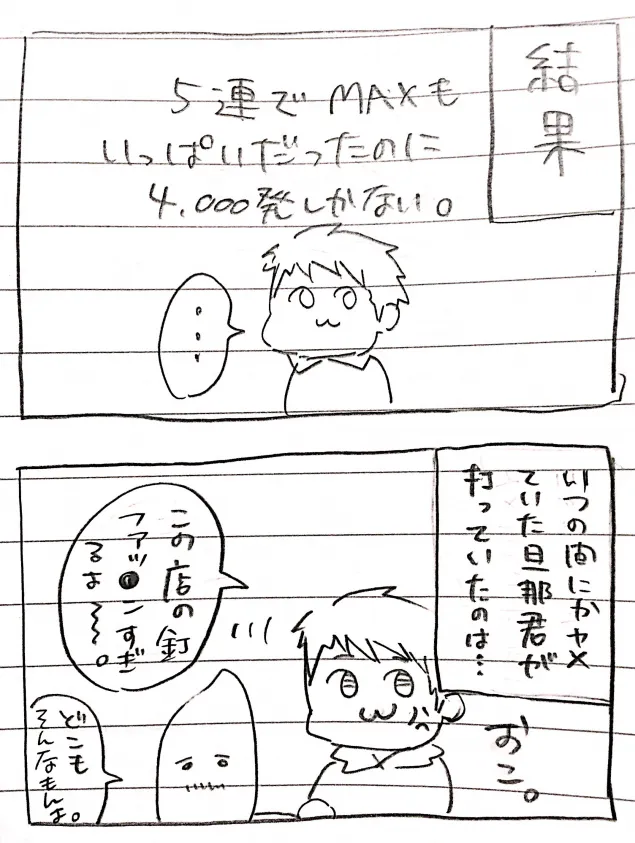 結果
5連でMAXも
いっぱいだったのに
4,000発しかない。
・・・
いつの間にかヤメ
ていた旦那君が
打っていたのは…
おこ。
この店の釘
ファッ●ンすぎ
るよ〜〜。
どこも
そんなもんよ。